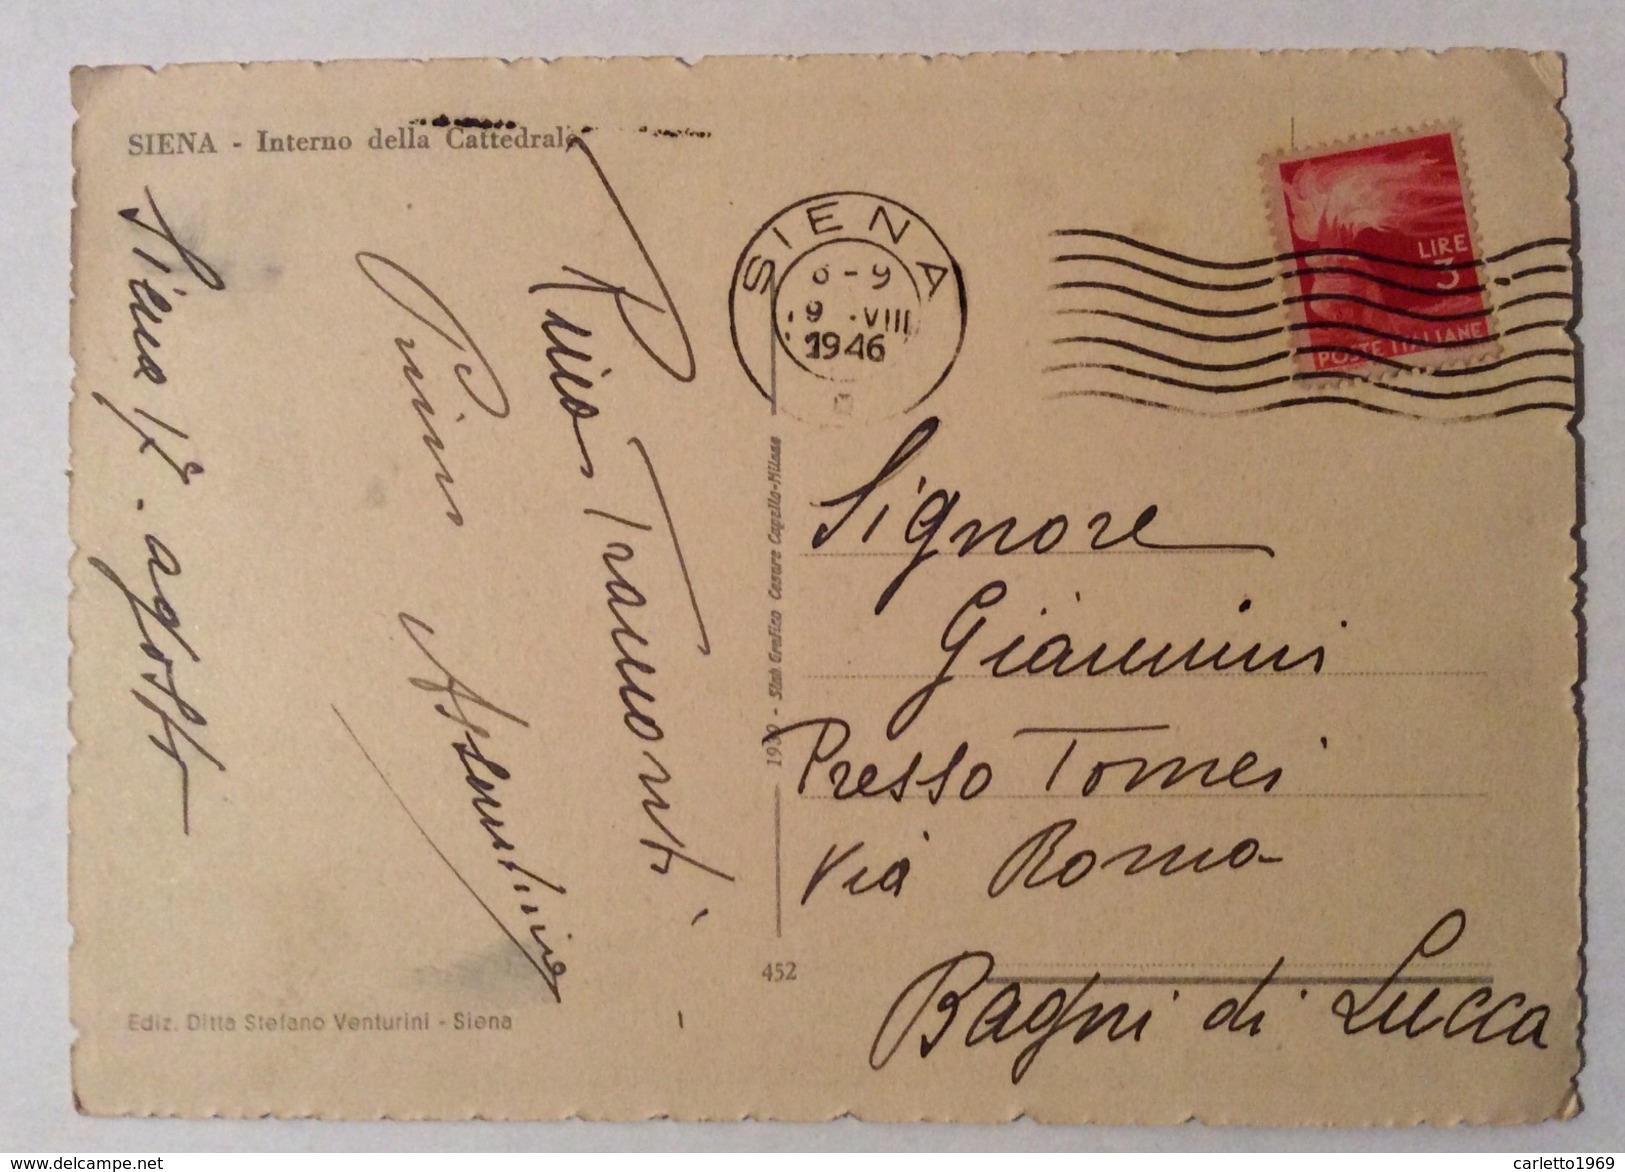 SIENA - Interno della Cattedrale
Siena 17. agosto
Pino Assuntina
Rino Tramonti
SIENA
8-9
9 . VIII
1946
LIRE
3
POSTE ITALIANE
Stab. Grafico Cesare Capello-Milano
Signore
Giannini
Presso Tomei
Via Roma
Bagni di Lucca
452
Ediz. Ditta Stefano Venturini - Siena
http://www.delcampe.net
carletto1969